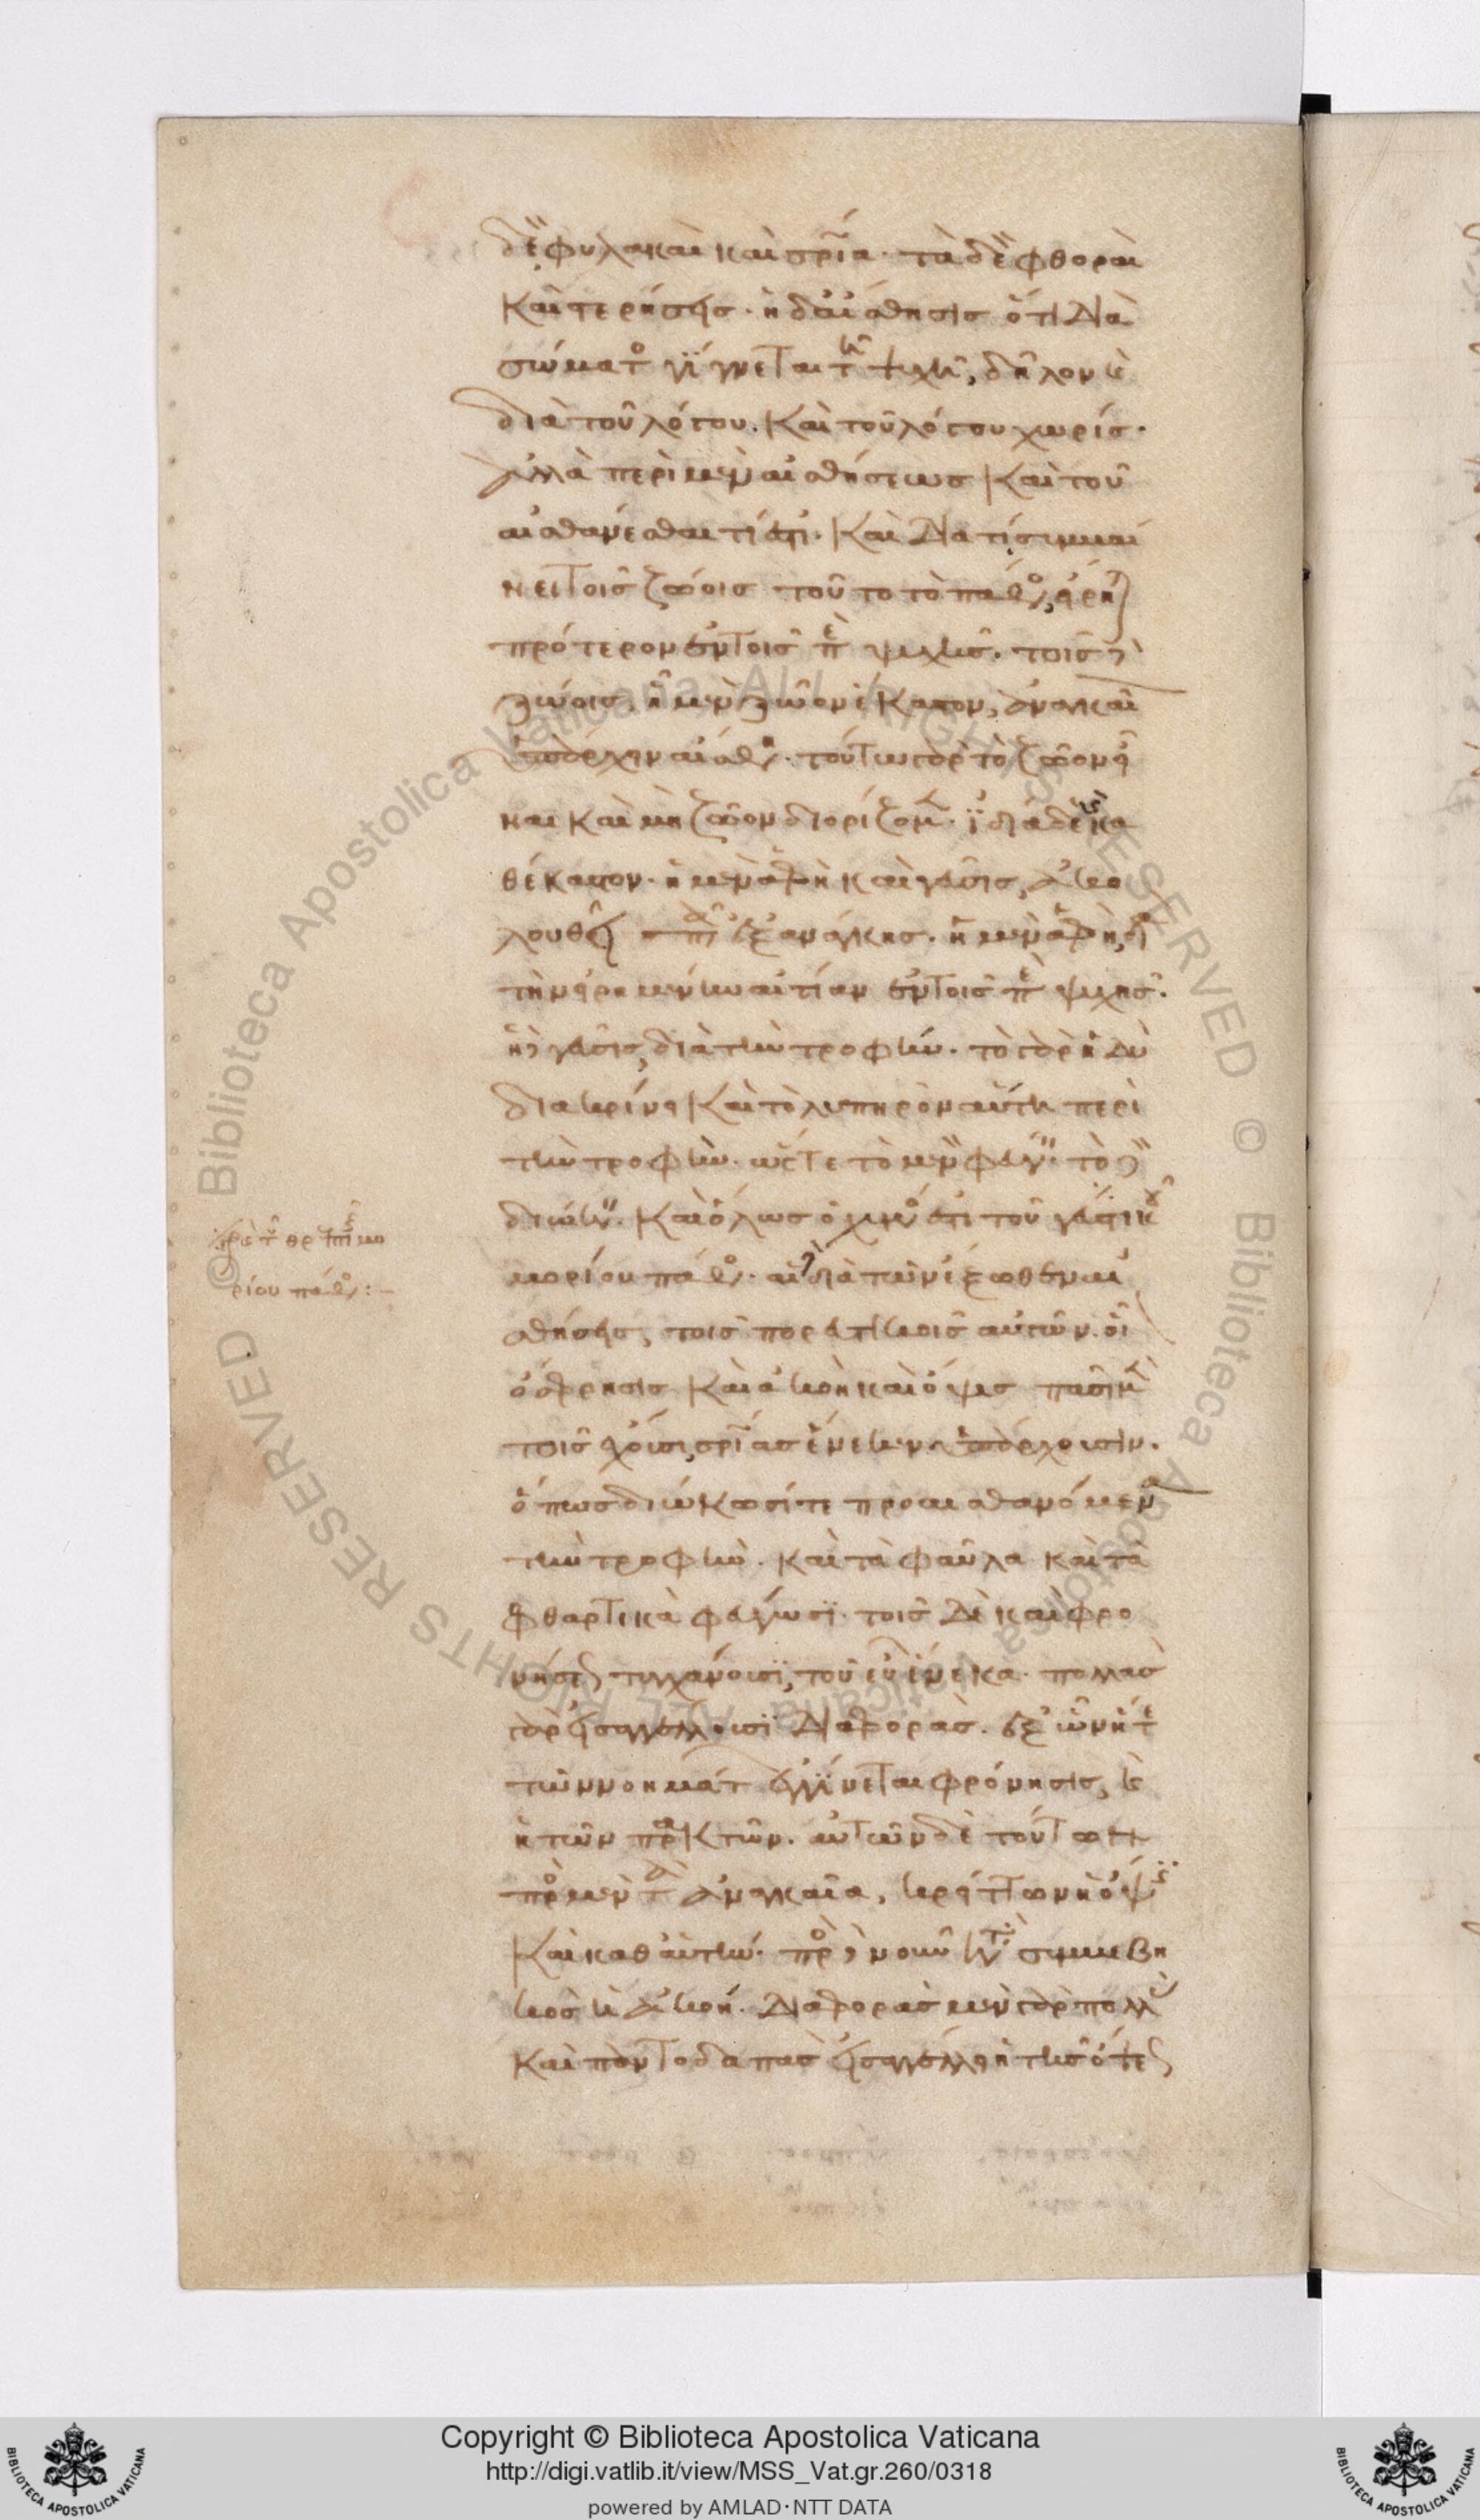 δὲ φυλακαὶ καὶ σρίαι· τὰ δὲ φθοραὶ
καὶ στερήσεις· ἡ δ' αἴσθησις ὅτι διὰ
σώματος γίγνεται τῆ ψυχῆ, δῆλον καὶ
διὰ τοῦ λόγου. καὶ τοῦ λόγου χωρίς·
ἀλλὰ περὶ μὲν αἰσθήσεως καὶ τοῦ
αἰσθάνεσθαι τί ἐστι· καὶ διὰ τί συμβαί
νει τοῖς ζώοις τοῦτο τὸ πάθος, εἴρηται
πρότερον ἐν τοῖς περὶ ψυχῆς· τοῖς δὲ
ζώοις, ἧ μὲν ζῶον ἕκαστον, ἀναγκαῖ
ὑπάρχειν αἴσθη· τούτω γὰρ τὸ ζῶον εἶ
ναι καὶ μὴ ζῶον διορίζομεν· ἰδία δὲ κα
θέκαστον· ἡ μὲν ἁφὴ καὶ γεῦσις, ἀκο
λουθεῖ πᾶσιν ἐξ ἀνάγκης· ἡ μὲν ἁφὴ, διὰ
τὴν εἰρημένην αἰτίαν ἐν τοῖς περὶ ψυχῆς·
ἡ δὲ γεῦσις, διὰ τὴν τροφήν· τὸ γὰρ ἡδὺ
διακρίνει καὶ τὸ λυπηρὸν αὕτη περὶ
τὴν τροφήν· ὥστε τὸ μὲν φεύγειν· τὸ δὲ
διώκειν· καὶ ὅλως ὁ χυμός ἐστι τοῦ γευστικοῦ
μορίου πάθος· αἱ δὲ διὰ τῶν ἔξωθεν αἰ
σθήσεις, τοῖς πορευτικοῖς αὐτῶν. οἷ
ὄσφρησις καὶ ἀκοὴ καὶ ὄψις πᾶσι μὲν
τοῖς ἔχουσι, σρίας ἕνεκεν ὑπάρχουσιν·
ὅπως διώκωσί τε προαισθανόμενα
τὴν τροφὴν· καὶ τὰ φαῦλα καὶ τὰ
φθαρτικὰ φεύγωσι· τοῖς δὲ καὶ φρο
νήσεως τυγχάνουσι, τοῦ εὖ ἕνεκα· πολλὰς
γὰρ εἰσαγγέλλουσι διαφοράς. ἐξ ὧν ἥ τε
τῶν νοημάτων ἐγγίνεται φρόνησις, καὶ
ἡ τῶν πρακτῶν. αὐτῶν δὲ τούτων
πρὸς μὲν τὰ ἀναγκαῖα, κρείττων ἡ ὄψις
καὶ καθ' αὑτήν· πρὸς δὲ νοῦν κατὰ συμβε
κὸς ἡ ἀκοή· διαφορὰς μὲν γὰρ πολλὰς
καὶ παντοδαπὰς εἰσαγγέλλει ἡ τῆς ὄψεως
μορίου πάθος:
Copyright © Biblioteca Apostolica Vaticana
http://digi.vatlib.it/view/MSS_Vat.gr.260/0318
powered by AMLAD·NTT DATA
BIBLIOTECA APOSTOLICA VATICANA
BIBLIOTECA APOSTOLICA VATICANA
© Biblioteca Apostolica Vaticana ALL RIGHTS RESERVED
© Biblioteca Apostolica Vaticana ALL RIGHTS RESERVED